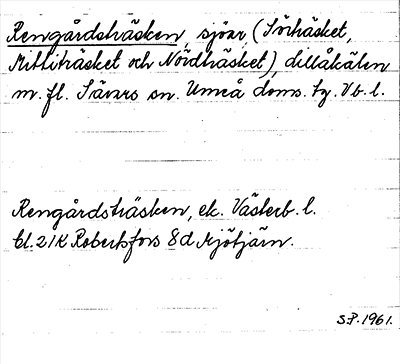 Rengårdsträsken, sjöar, (Sörträsket,
Mittiträsket och Nordträsket), dillåkälen
m. fl. Sävars sn. Umeå doms. tg. Vb. l.
Rengårdsträsken, ek. Västerb. l.
Bl. 21K Robertsfors 8d Mjötjärn.
S.P. 1961.